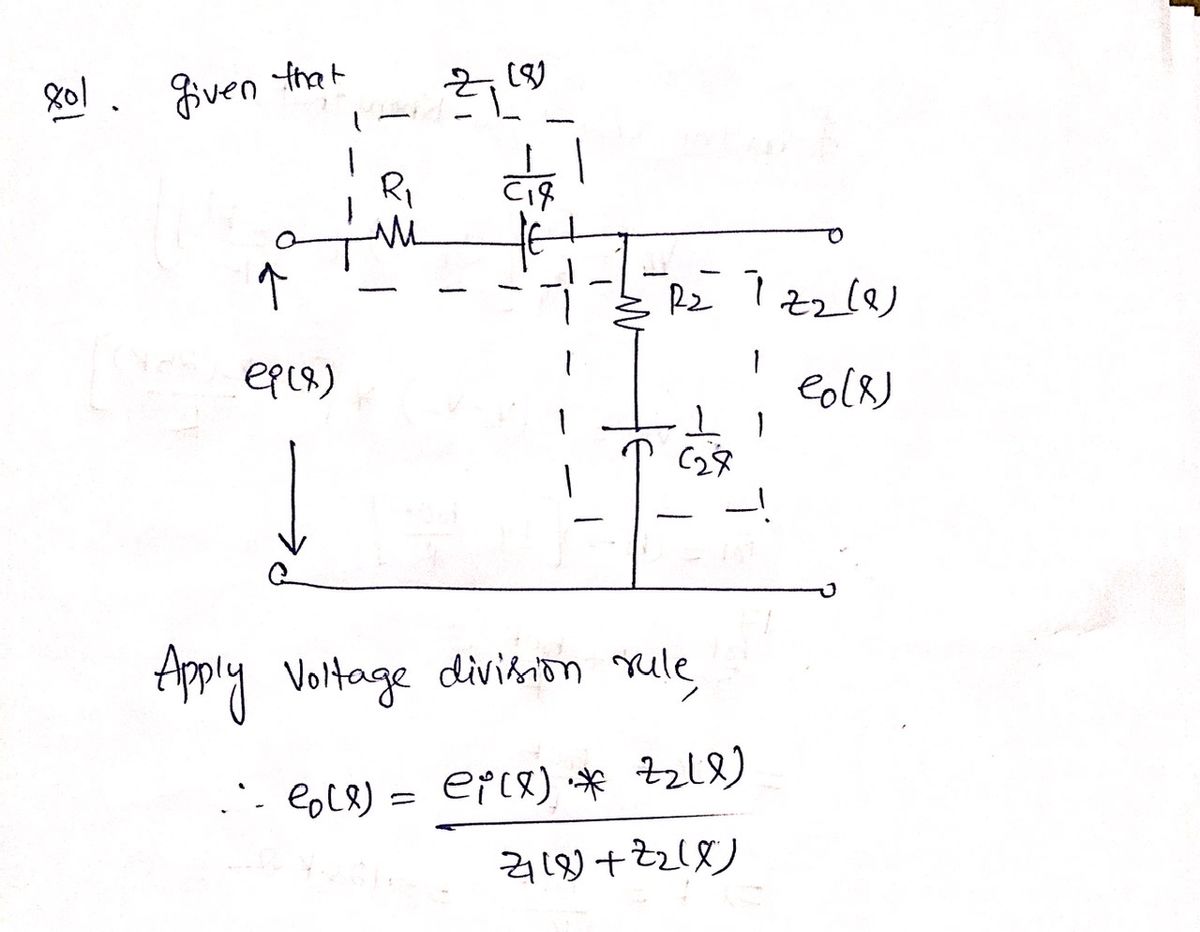 sol. given that Z₁(s)
R₁ 1/C₁s
R₂ Z₂(s)
ei(s) eo(s)
1/C₂s
Apply Voltage division rule,
∴ eo(s) = ei(s) .* Z₂(s)
Z₁(s) + Z₂(s)